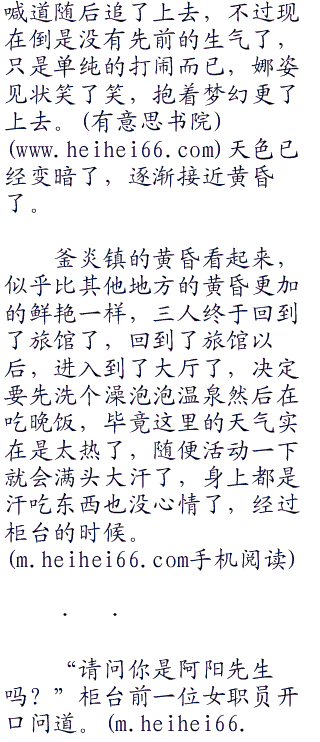 喊道随后追了上去，不过现
在倒是没有先前的生气了，
只是单纯的打闹而已，娜姿
见状笑了笑，抱着梦幻更了
上去。(有意思书院)
(www.heihei66.com)天色已
经变暗了，逐渐接近黄昏
了。
釜炎镇的黄昏看起来，
似乎比其他地方的黄昏更加
的鲜艳一样，三人终于回到
了旅馆了，回到了旅馆以
后，进入到了大厅了，决定
要先洗个澡泡泡温泉然后在
吃晚饭，毕竟这里的天气实
在是太热了，随便活动一下
就会满头大汗了，身上都是
汗吃东西也没心情了，经过
柜台的时候。
(m.heihei66.com手机阅读)
. .
“请问你是阿阳先生
吗？”柜台前一位女职员开
口问道。(m.heihei66.